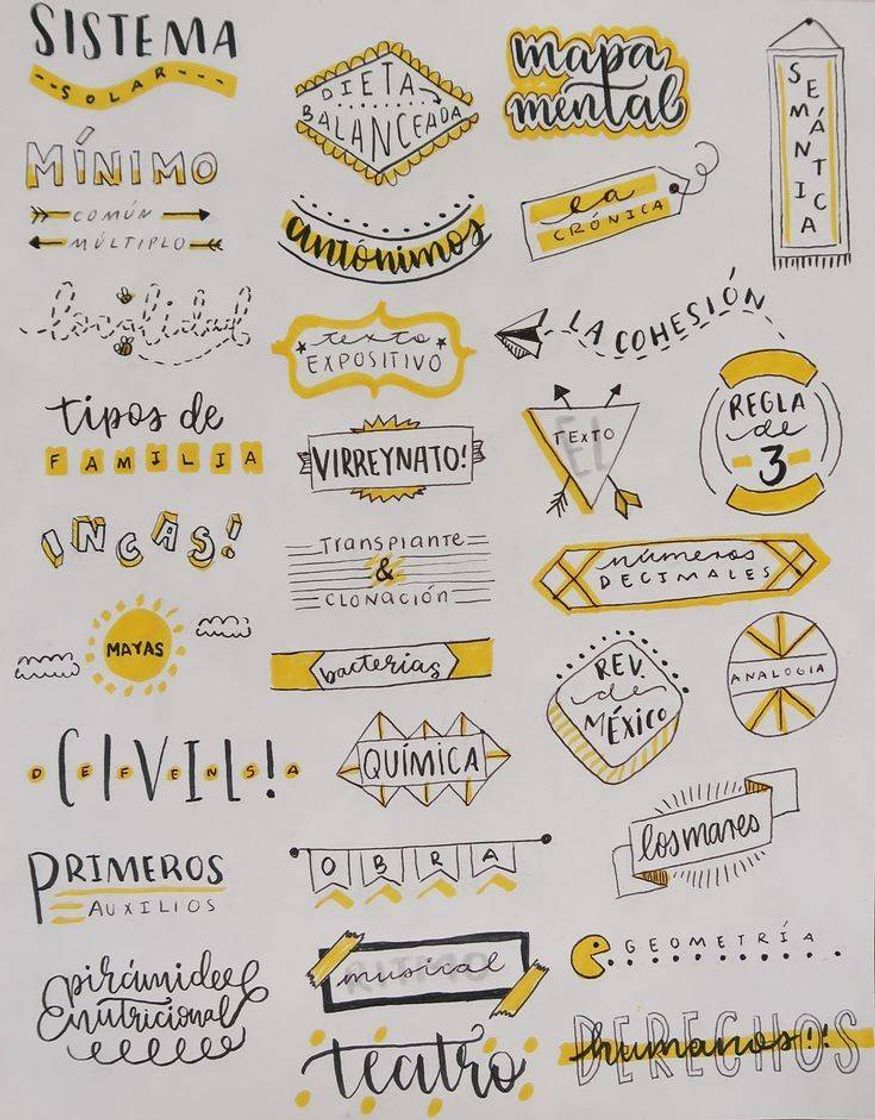 SISTEMA
SOLAR
DIETA
BALANCEADA
mapa
mental
SEMÁNTICA
MÍNIMO
COMÚN
MÚLTIPLO
antónimos
la
CRÓNICA
texto
EXPOSITIVO
LA COHESIÓN
tipos de
FAMILIA
VIRREYNATO!
EL
TEXTO
REGLA
de
3
INCAS!
Transplante
&
CLONACIÓN
números
DECIMALES
MAYAS
bacterias
REV.
de
MÉXICO
ANALOGIA
DEFENSA
CIVIL!
QUÍMICA
los mares
PRIMEROS
AUXILIOS
OBRA
GEOMETRÍA
pirámide
nutricional
RITMO
musical
teatro
DERECHOS
humanos!!